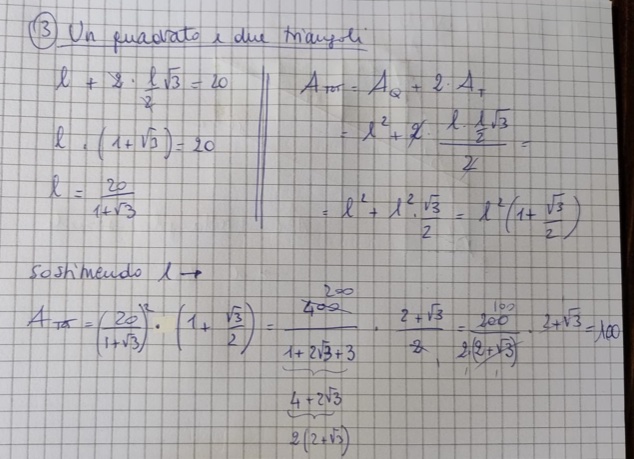 ③ Un quadrato e due triangoli
l + 2 · l/2 √3 = 20
l · (1+√3) = 20
l = 20/(1+√3)
A_TOT = A_Q + 2 · A_T
= l² + 2 · (l · l/2 √3)/2 =
= l² + l² · √3/2 = l² (1 + √3/2)
Sostituendo l →
A_TOT = (20/(1+√3))² · (1 + √3/2) = 400/(1+2√3+3) · (2+√3)/2 = 200/(2(2+√3)) · 2+√3 = 100
200
100
4+2√3
2(2+√3)